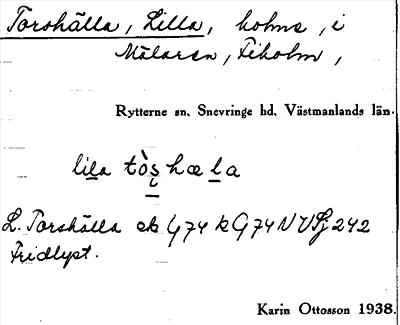 Torshälla, Lilla, holme, i
Mälaren, Fiholm,
Rytterne sn. Snevringe hd. Västmanlands län.
lila tòs̩ hæla
L. Torshälla ek G 74 k G 74 NV Sj 242
Fridlyst.
Karin Ottosson 1938.